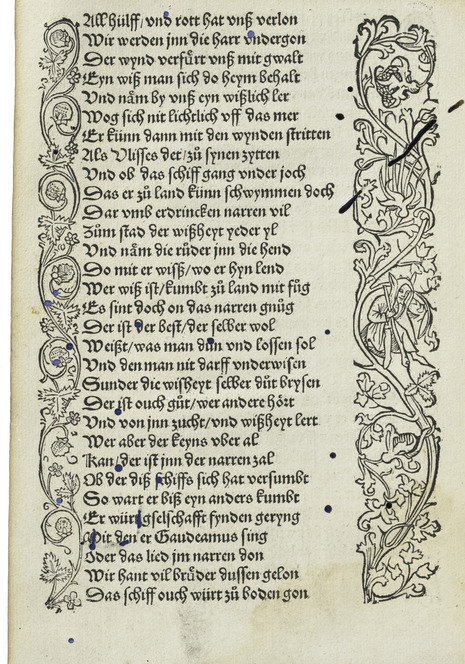 All hülff / vnd rott hat vnß verlon
Wir werden jnn die harr vndergon
Der wynd verfürt vnß mit gwalt
Eyn wiß man sich do heym behalt
Vnd näm by vnß eyn wißlich ler
Wog sich nit lichtlich vff das mer
Er künn dann mit den wynden stritten
Als Vlisses det / zů synen zytten
Vnd ob das schiff gang vnder joch
Das er zů land künn schwymmen doch
Dar vmb erdrincken narren vil
Zům stad der wißheyt yeder yl
Vnd näm die růder jnn die hend
Do mit er wisß / wo er hyn lend
Wer wiß ist / kumbt zů land mit fůg
Es sint doch on das narren gnůg
Der ist der best / der selber wol
Weißt / was man důn vnd lossen sol
Vnd den man nit darff vnderwisen
Sunder die wisheyt selber důt brysen
Der ist ouch gůt / wer andere hört
Vnd von jnn zucht / vnd wißheyt lert
Wer aber der keyns vber al
Kan / der ist jnn der narren zal
Ob der diß schiffs sich hat versumbt
So wart er biß eyn anders kumbt
Er würt gselschafft fynden geryng
Mit den er Gaudeamus sing
Oder das lied jm narren don
Wir hant vil brůder dussen gelon
Das schiff ouch würt zů boden gon